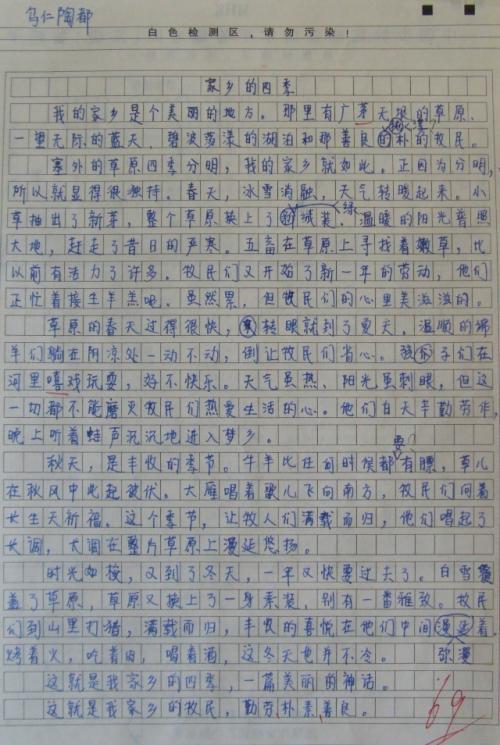 乌仁陶都
白色检测区，请勿污染！
家乡的四季
我的家乡是个美丽的地方。那里有广茅无垠的草原、
一望无际的蓝天、碧波荡漾的湖泊和那善良的朴的牧民。
塞外的草原四季分明，我的家乡就如此。正因为分明，
所以就显得很独特。春天，冰雪消融，天气转暖起来。小
草抽出了新芽，整个草原换上了绿装。温暖的阳光普照
大地，赶走了昔日的严寒。五畜在草原上寻找着嫩草，比
以前有活力了许多。牧民们又开始了新一年的劳动，他们
正忙着接生羊羔呢。虽然累，但牧民们的心里美滋滋的。
草原的春天过得很快，转眼就到了夏天，温顺的绵
羊们躺在阴凉处一动不动，倒让牧民们省心。孩子们在
河里嘻戏玩耍，好不快乐。天气虽热、阳光虽刺眼，但这
一切都不能磨灭牧民们热爱生活的心。他们白天辛勤劳作，
晚上听着蛙声沉沉地进入梦乡。
秋天，是丰收的季节。牛羊比任何时候都有膘，草儿
在秋风中此起彼伏。大雁唱着歌儿飞向南方，牧民们向着
长生天祈福。这个季节，让牧人们满载而归，他们唱起了
长调，长调在整片草原上漫延悠扬。
时光如梭，又到了冬天，一年又快要过去了。白雪覆
盖了草原，草原又换上了一身素装，别有一番雅致。牧民
们到山里打猎，满载而归，丰收的喜悦在他们中间漫延着。
弥漫
烤着火，吃着肉，喝着酒，这冬天也并不冷。
这就是我家乡的四季，一篇美丽的神话。
这就是我家乡的牧民，勤劳、朴素、善良。
69